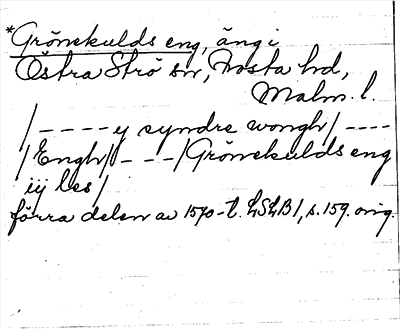 *Grönekulds eng, äng i
Östra Strö sn, Frosta hd,
Malm. l.
/----y syndre wongh/----
/Engh/---/Grönekulds eng
iij les/
förra delen av 1570-t. LSLB 1, s. 159. orig.